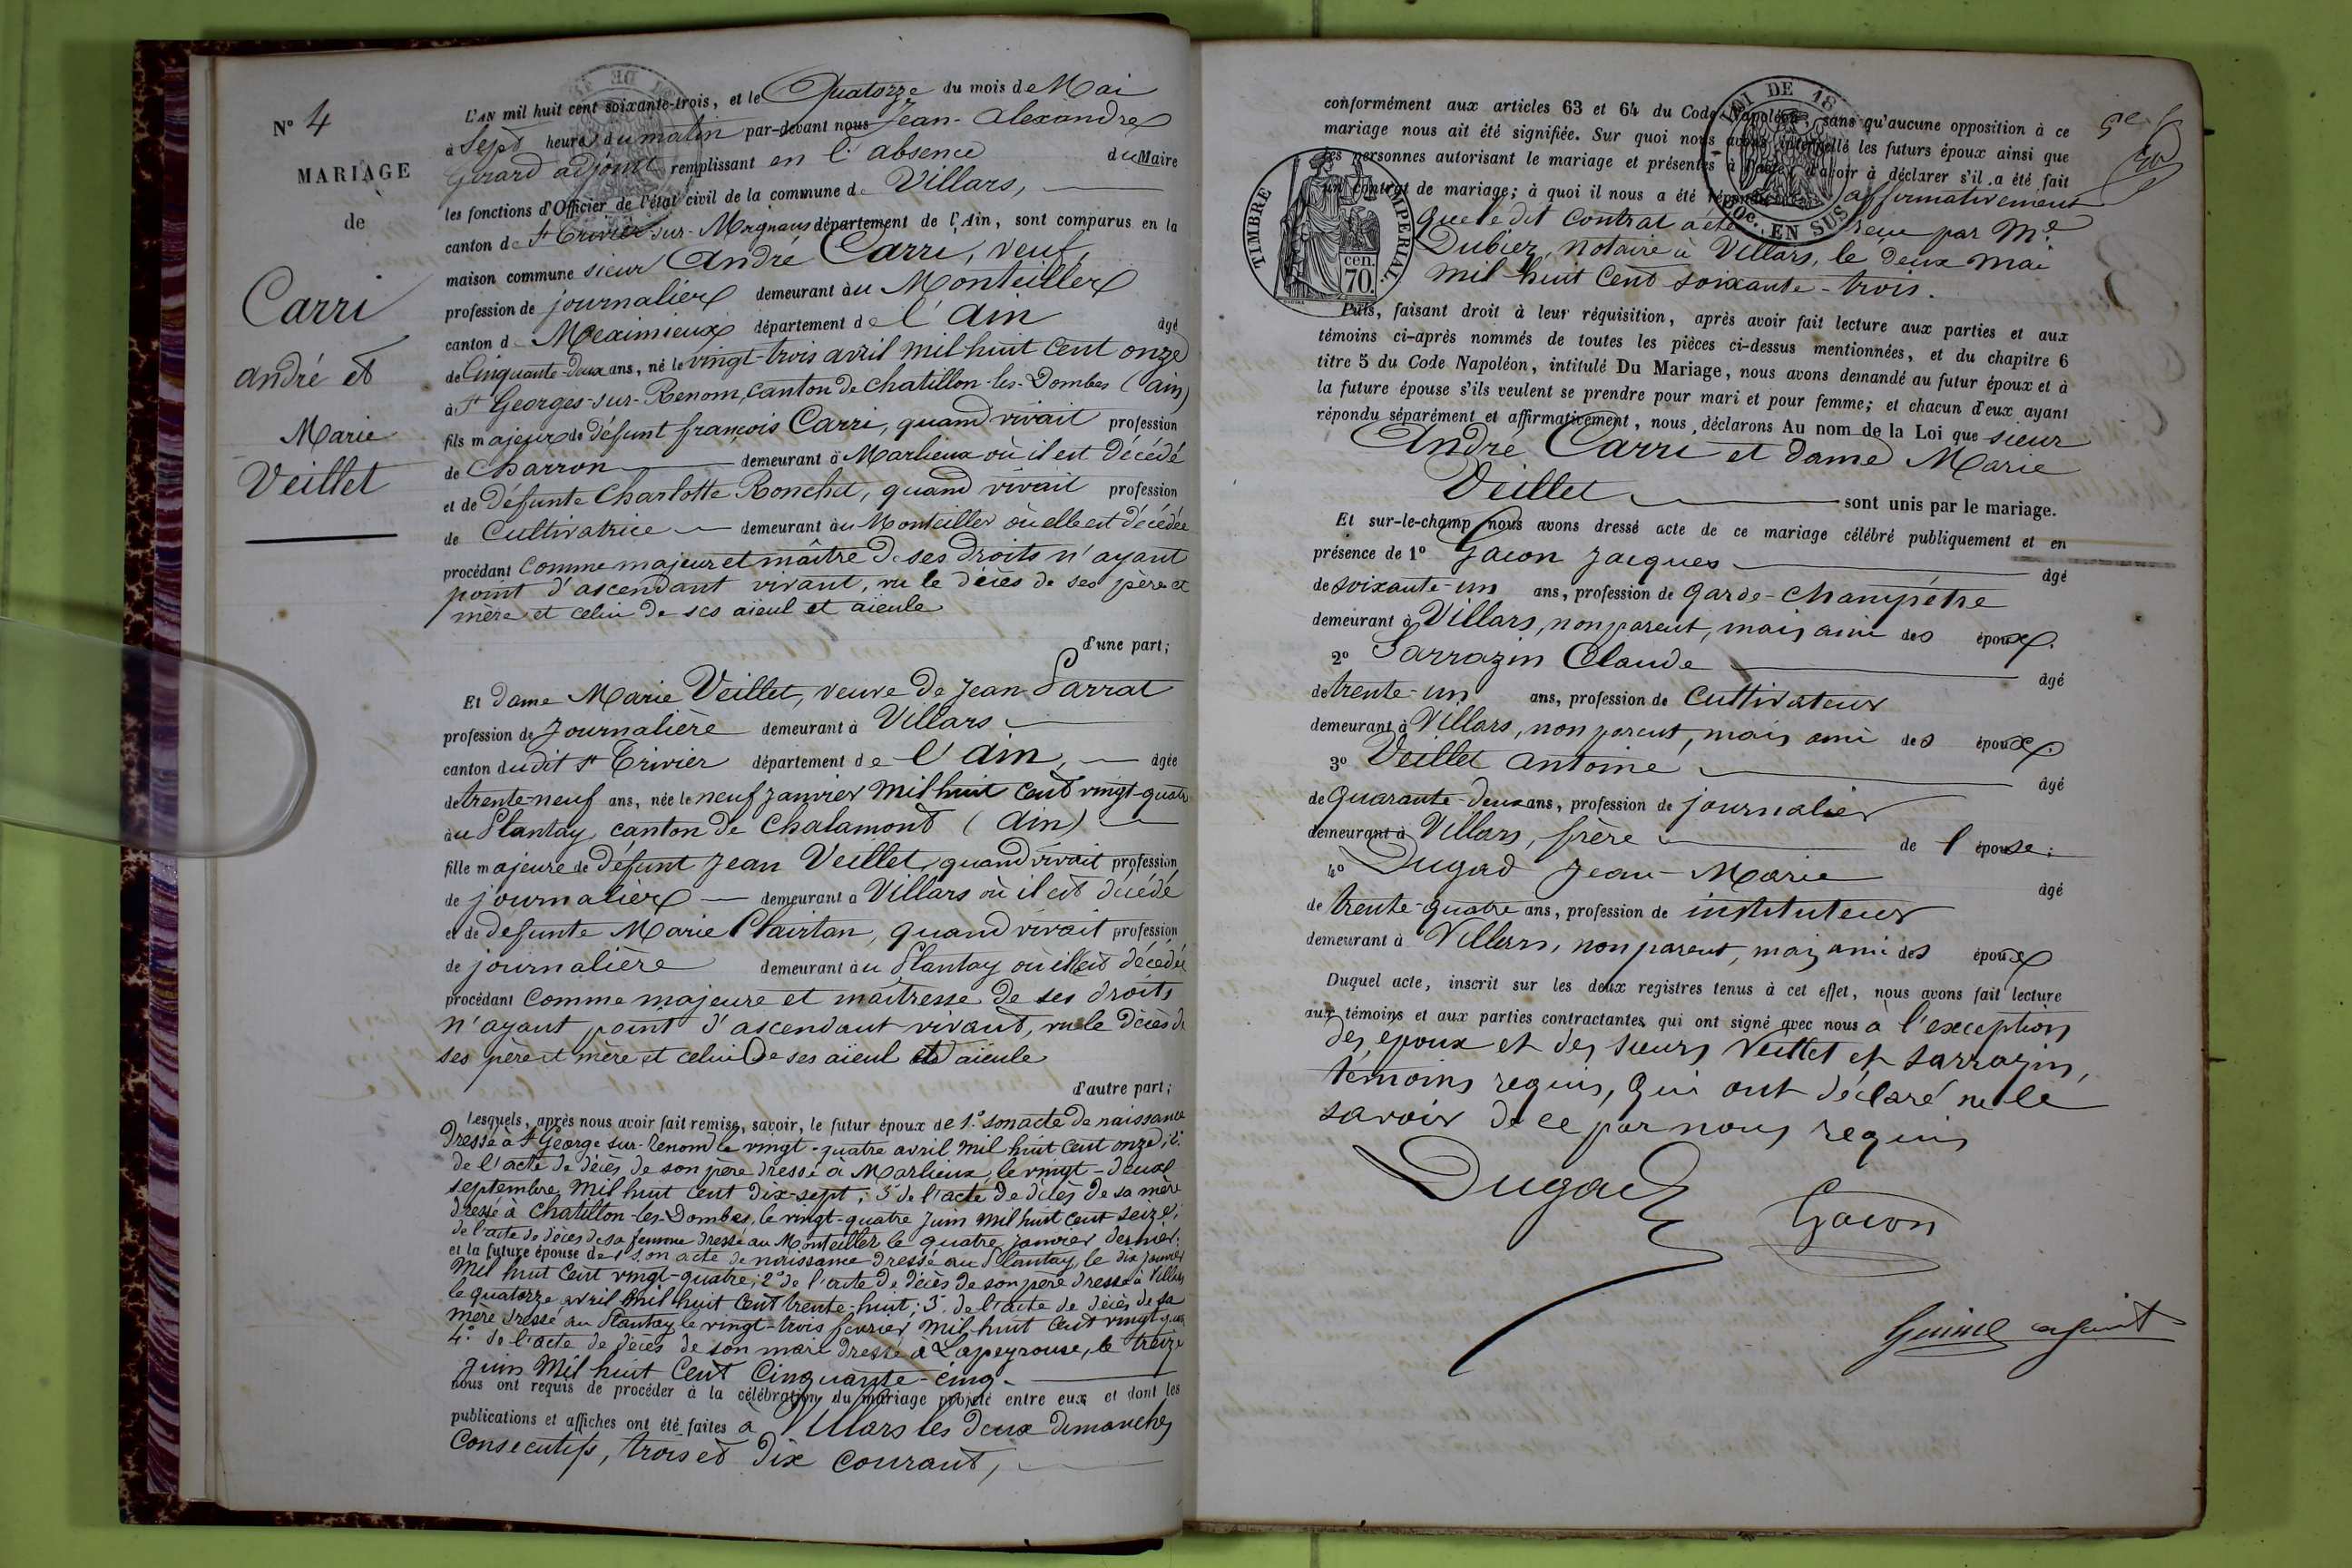 N° 4
MARIAGE
de
Carri
andré et
Marie
Veillet
L'AN mil huit cent soixante-trois, et le Quatorze du mois de Mai
à Sept heures du matin par-devant nous Jean-Alexandre
adjoint remplissant en l'absence du Maire
les fonctions d'Officier de l'état civil de la commune de Villars,
canton de St Trivier-sur-Moignans département de l'Ain, sont comparus en la
maison commune sieur André Carri, veuf,
profession de journalier demeurant au Montellier
canton de Meximieux département de l'Ain âgé
de Cinquante-deux ans, né le vingt-trois avril mil huit cent onze
à St Georges-sur-Renom, canton de Chatillon-les-Dombes (ain)
fils majeur de défunt françois Carri, quand vivait profession
de Charron demeurant à Marlieux où il est décédé
et de défunte Charlotte Ronchet, quand vivait profession
de Cultivatrice demeurant au Monteiller où elle est décédée
procédant comme majeur et maître de ses droits n'ayant
point d'ascendant vivant, vu le décès de ses père et
mère et celui de ses aïeul et aïeule
d'une part;
Et dame Marie Veillet, veuve de Jean Sarrat
profession de Journalière demeurant à Villars
canton dudit St Trivier département de l'Ain, âgée
de trente-neuf ans, née le neuf janvier mil huit cent vingt-quatre
au Plantay, canton de Chalamont (Ain)
fille majeure de défunt Jean Veillet, quand vivait profession
de journalier demeurant à Villars où il est décédé
et de défunte Marie Clairtan, quand vivait profession
de journalière demeurant au Plantay où elle est décédée
procédant comme majeure et maîtresse de ses droits
n'ayant point d'ascendant vivant, vu le décès de
ses père et mère et celui de ses aïeul et aïeule
d'autre part;
Lesquels, après nous avoir fait remise, savoir, le futur époux de 1° son acte de naissance
dressé à St George-sur-Renom le vingt-quatre avril mil huit cent onze; 2°
de l'acte de décès de son père dressé à Marlieux le vingt-deux
septembre mil huit cent dix-sept; 3° de l'acte de décès de sa mère
dressé à Chatillon-les-Dombes, le vingt-quatre Juin mil huit cent seize;
de l'acte de décès de sa femme dressé au Monteiller le quatre janvier dernier;
et la future épouse de 1° son acte de naissance dressé au Plantay, le dix janvier
mil huit cent vingt-quatre; 2° de l'acte de décès de son père dressé à Villars
le quatorze avril mil huit cent trente-huit; 3° de l'acte de décès de sa
mère dressé au Plantay le vingt-trois fevrier mil huit cent vingt
4° de l'acte de décès de son mari dressé à Lapeyrouse, le treize
juin mil huit cent cinquante-cinq.
nous ont requis de procéder à la célébration du mariage projeté entre eux et dont les
publications et affiches ont été faites à Villars les deux dimanches
consecutifs, trois et dix courant,
conformément aux articles 63 et 64 du Code Napoléon, sans qu'aucune opposition à ce
mariage nous ait été signifiée. Sur quoi nous avons interpellé les futurs époux ainsi que
les personnes autorisant le mariage et présentes à l'acte, d'avoir à déclarer s'il a été fait
un contrat de mariage; à quoi il nous a été répondu affirmativement
que le dit contrat a été recu par Me
Dubiez, notaire à Villars, le deux mai
mil huit cent soixante-trois.
TIMBRE IMPERIAL.
cen.
70.
LOI DE 18
10c. EN SUS
Puis, faisant droit à leur réquisition, après avoir fait lecture aux parties et aux
témoins ci-après nommés de toutes les pièces ci-dessus mentionnées, et du chapitre 6
titre 5 du Code Napoléon, intitulé Du Mariage, nous avons demandé au futur époux et à
la future épouse s'ils veulent se prendre pour mari et pour femme; et chacun d'eux ayant
répondu séparément et affirmativement, nous déclarons Au nom de la Loi que sieur
André Carri et dame Marie
Veillet sont unis par le mariage.
Et sur-le-champ nous avons dressé acte de ce mariage célébré publiquement et en
présence de 1° Gacon Jacques âgé
de soixante-un ans, profession de Garde-Champêtre
demeurant à Villars, non parent, mais ami des époux.
2° Sarrazin Claude âgé
de trente-un ans, profession de cultivateur
demeurant à Villars, non parent, mais ami des époux.
3° Veillet Antoine âgé
de Quarante-deux ans, profession de journalier
demeurant à Villars, frère de l'épouse;
4° Dugad Jean-Marie âgé
de trente-quatre ans, profession de instituteur
demeurant à Villars, non parent, mais ami des époux
Duquel acte, inscrit sur les deux registres tenus à cet effet, nous avons fait lecture
aux témoins et aux parties contractantes qui ont signé avec nous à l'exception
des époux et des sieurs Veillet et Sarrazin,
témoins requis, qui ont déclaré ne le
savoir de ce par nous requis
Dugad
Gacon